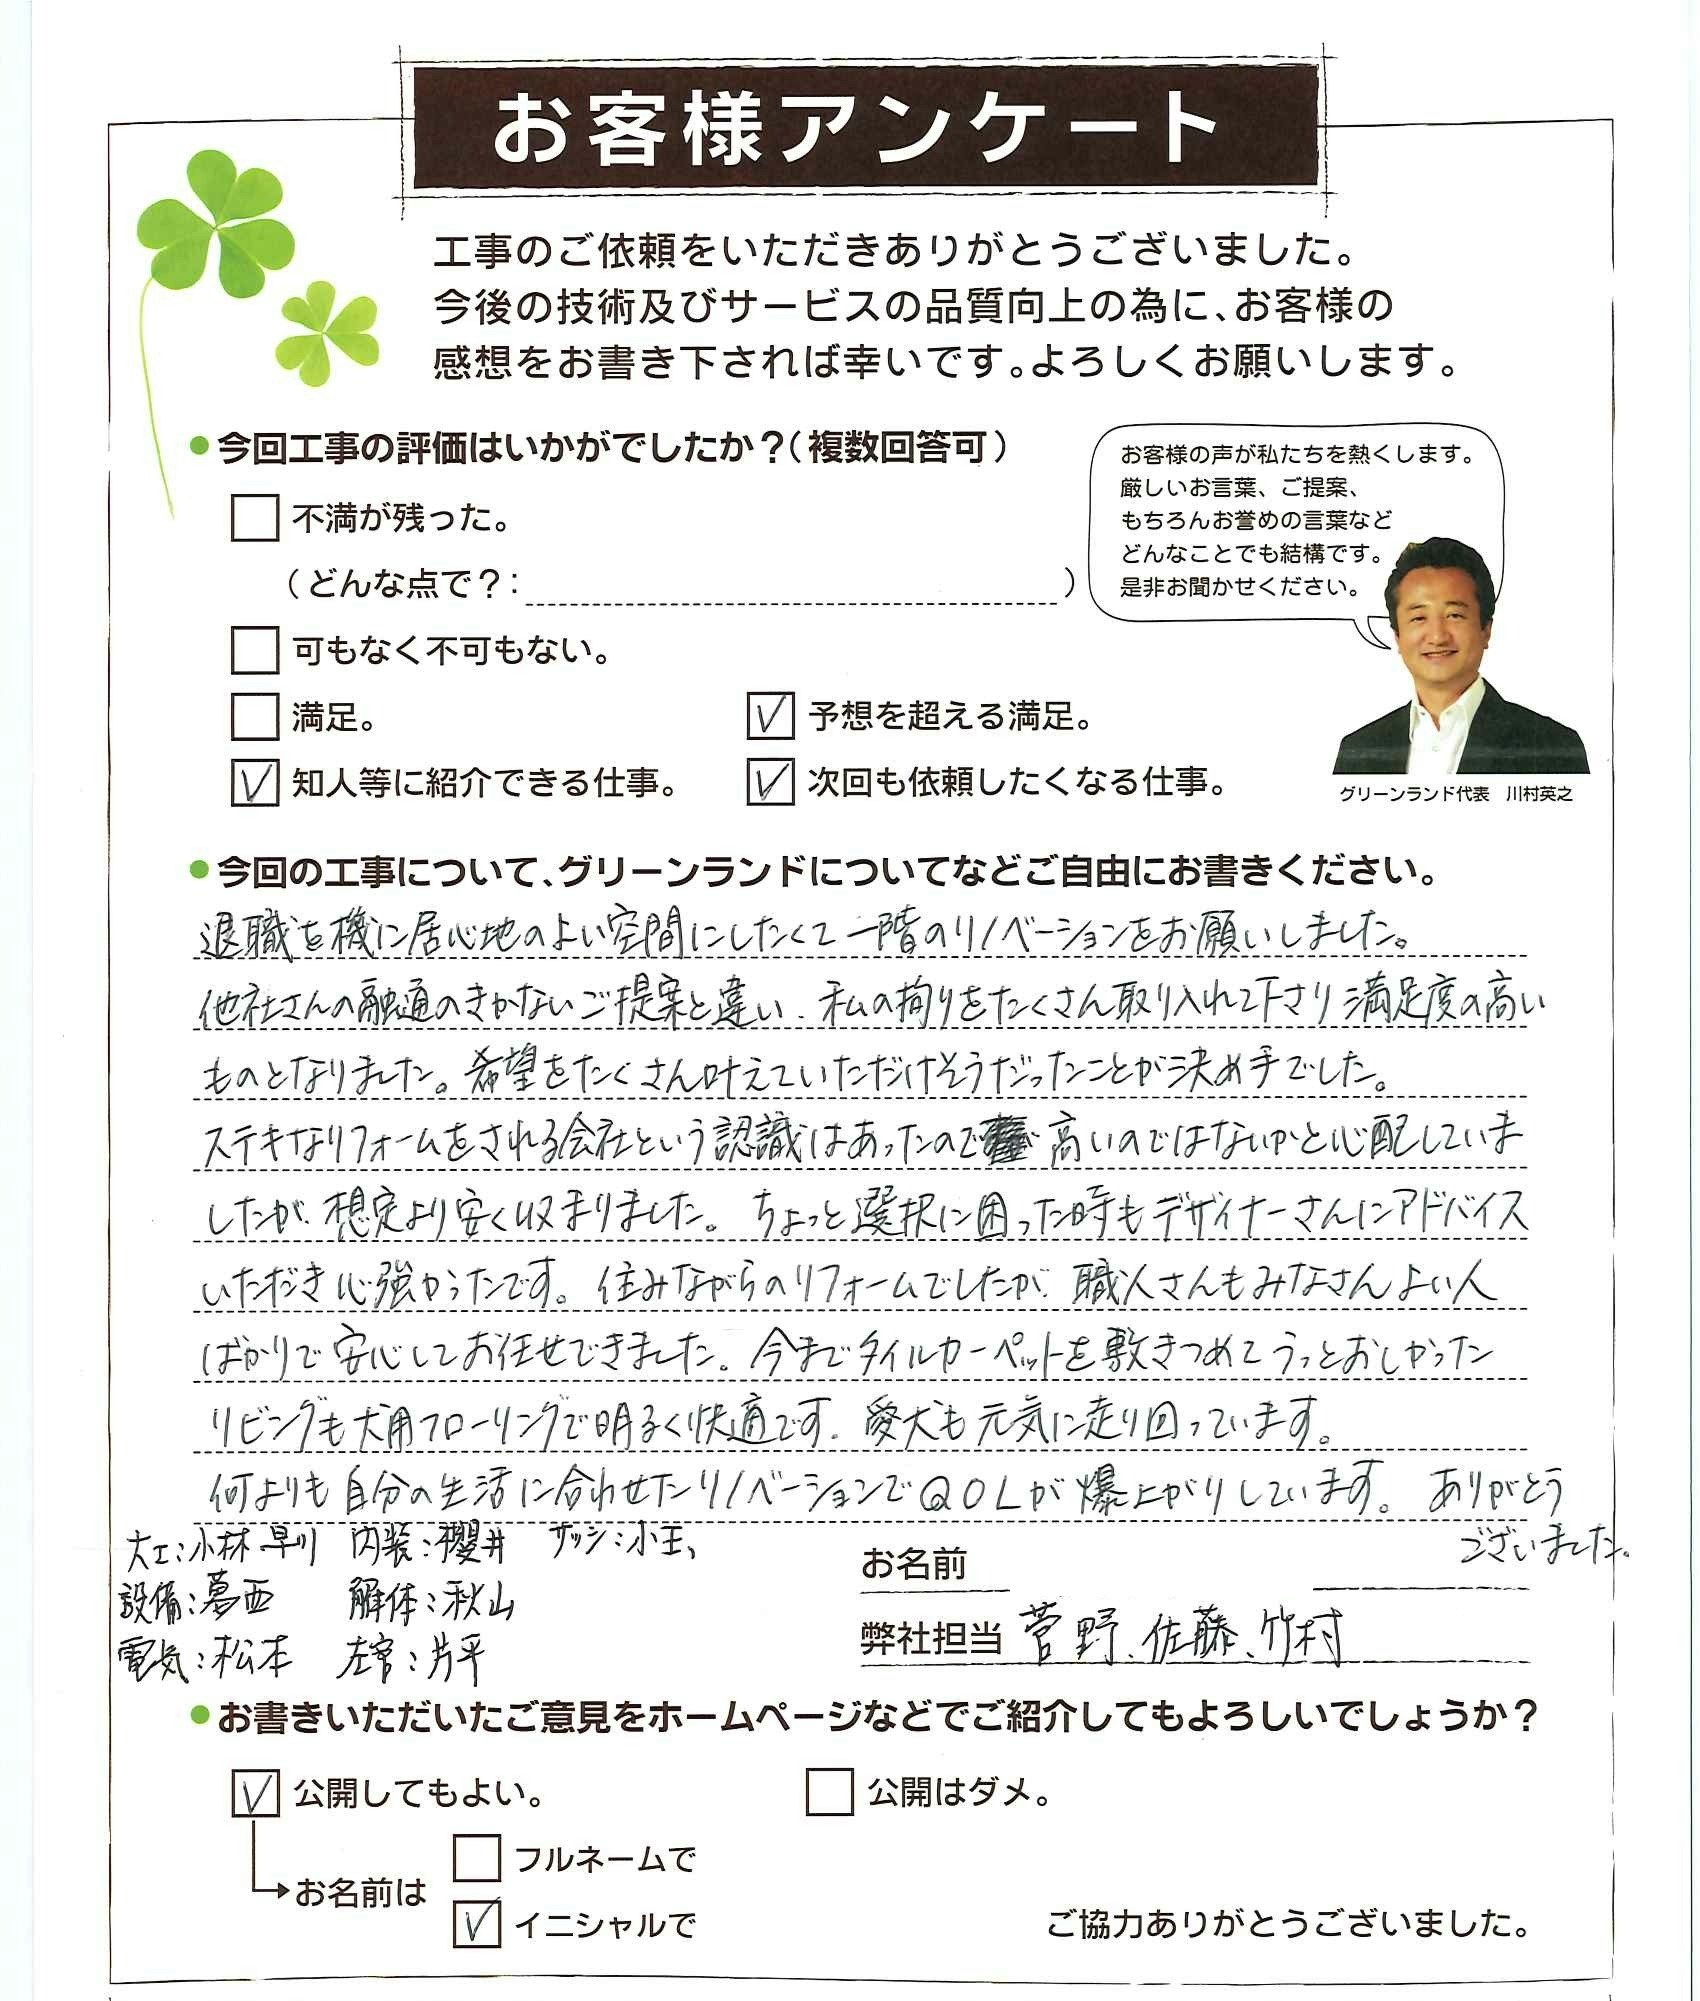 お客様アンケート
工事のご依頼をいただきありがとうございました。
今後の技術及びサービスの品質向上の為に、お客様の
感想をお書き下されば幸いです。よろしくお願いします。
●今回工事の評価はいかがでしたか？（複数回答可）
お客様の声が私たちを熱くします。
厳しいお言葉、ご提案、
もちろんお誉めの言葉など
どんなことでも結構です。
是非お聞かせください。
グリーンランド代表 川村英之
□ 不満が残った。
（どんな点で？： ）
□ 可もなく不可もない。
□ 満足。 ☑ 予想を超える満足。
☑ 知人等に紹介できる仕事。 ☑ 次回も依頼したくなる仕事。
●今回の工事について、グリーンランドについてなどご自由にお書きください。
退職を機に居心地のよい空間にしたくて一階のリノベーションをお願いしました。
他社さんの融通のきかないご提案と違い、私の拘りをたくさん取り入れて下さり満足度の高い
ものとなりました。希望をたくさん叶えていただけそうだったことが決め手でした。
ステキなリフォームをされる会社という認識はあったので高いのではないかと心配していま
したが、想定より安く収まりました。ちょっと選択に困った時もデザイナーさんにアドバイス
いただき心強かったです。住みながらのリフォームでしたが、職人さんもみなさんよい人
ばかりで安心してお任せできました。今までタイルカーペットを敷きつめてうっとおしかった
リビングも犬用フローリングで明るく快適です。愛犬も元気に走り回っています。
何よりも自分の生活に合わせたリノベーションでQOLが爆上がりしています。ありがとう
ございました。
大工：小林、早川 内装：櫻井 サッシ：小玉、
設備：葛西 解体：秋山
電気：松本 左官：片平
お名前
弊社担当 菅野、佐藤、竹村
●お書きいただいたご意見をホームページなどでご紹介してもよろしいでしょうか？
☑ 公開してもよい。 □ 公開はダメ。
お名前は □ フルネームで
☑ イニシャルで
ご協力ありがとうございました。